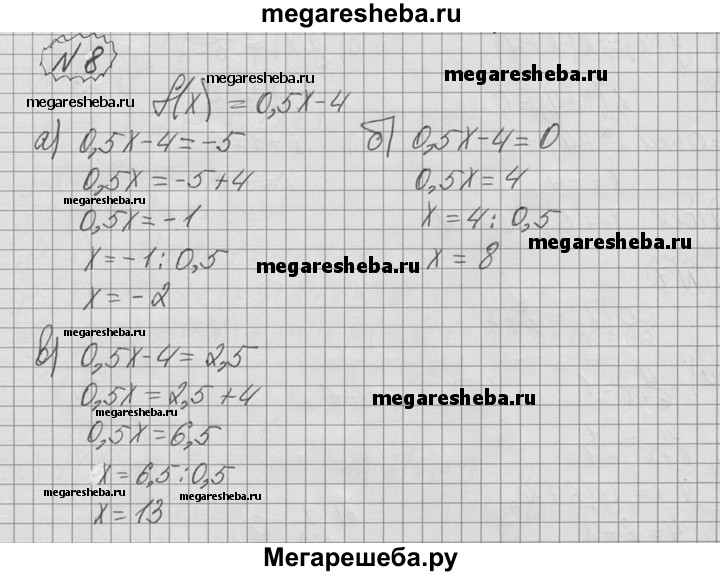 megaresheba.ru
N 8
megaresheba.ru
megaresheba.ru
megaresheba.ru
f(x) = 0,5x-4
а) 0,5x-4=-5
0,5x=-5+4
megaresheba.ru
0,5x=-1
x=-1:0,5
x=-2
б) 0,5x-4=0
0,5x=4
x=4:0,5
megaresheba.ru
x=8
megaresheba.ru
megaresheba.ru
в) 0,5x-4=2,5
0,5x=2,5+4
megaresheba.ru
megaresheba.ru
0,5x=6,5
x=6,5:0,5
megaresheba.ru
megaresheba.ru
x=13
Мегарешеба.ру